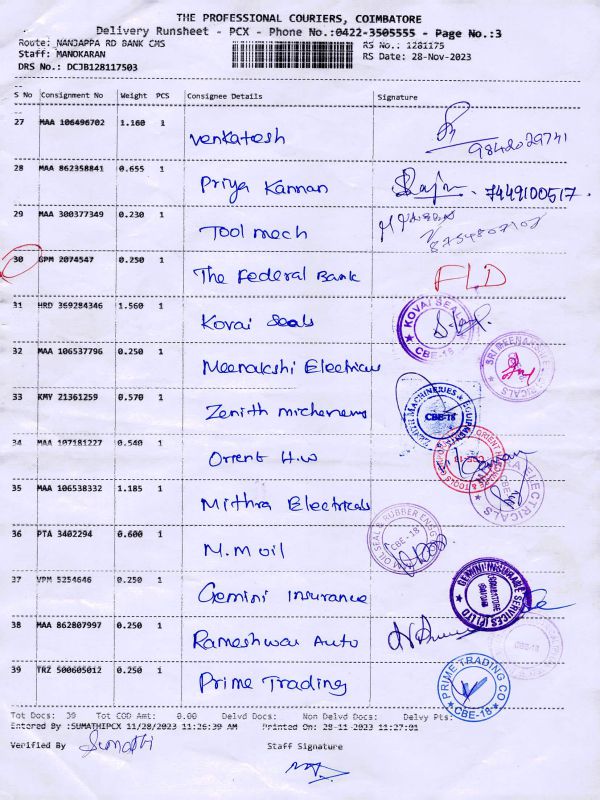 THE PROFESSIONAL COURIERS, COIMBATORE
Delivery Runsheet - PCX - Phone No.:0422-3505555 - Page No.:3
Route: NANJAPPA RD BANK CMS RS No.: 1281175
Staff: MANOKARAN RS Date: 28-Nov-2023
DRS No.: DCJB128117503
S No Consignment No Weight PCS Consignee Details Signature
27 MAA 106496702 1.160 1 Venkatesh 9842029741
28 MAA 862358841 0.655 1 Priya Kannan 7449100517.
29 MAA 300377349 0.230 1 Tool mech
30 GPM 2074547 0.250 1 The Federal Bank FLD
31 HRD 369284346 1.560 1 Kovai Seals KOVAI SEALS CBE-18
32 MAA 106537796 0.250 1 Meenakshi Electricals
33 KMY 21361259 0.570 1 Zenith CBE-18
34 MAA 107181227 0.540 1 Orient H.W
35 MAA 106538332 1.185 1 Mithra Electricals ELECTRICALS
36 PTA 3402294 0.600 1 M.M oil OIL SEAL & RUBBER ENGG CBE-18
37 VPM 5254646 0.250 1 Gemini Insurance GEMINI INSURANCE SERVICES (P) LTD
38 MAA 862807997 0.250 1 Rameshwar Auto CBE-18
39 TRZ 500605012 0.250 1 Prime Trading PRIME TRADING CO CBE-18
Tot Docs: 39 Tot COD Amt: 0.00 Delvd Docs: Non Delvd Docs: Delvy Pts:
Entered By :SUMATHIPCX 11/28/2023 11:26:39 AM Printed On: 28-11-2023 11:27:01
Verified By Sumathi Staff Signature